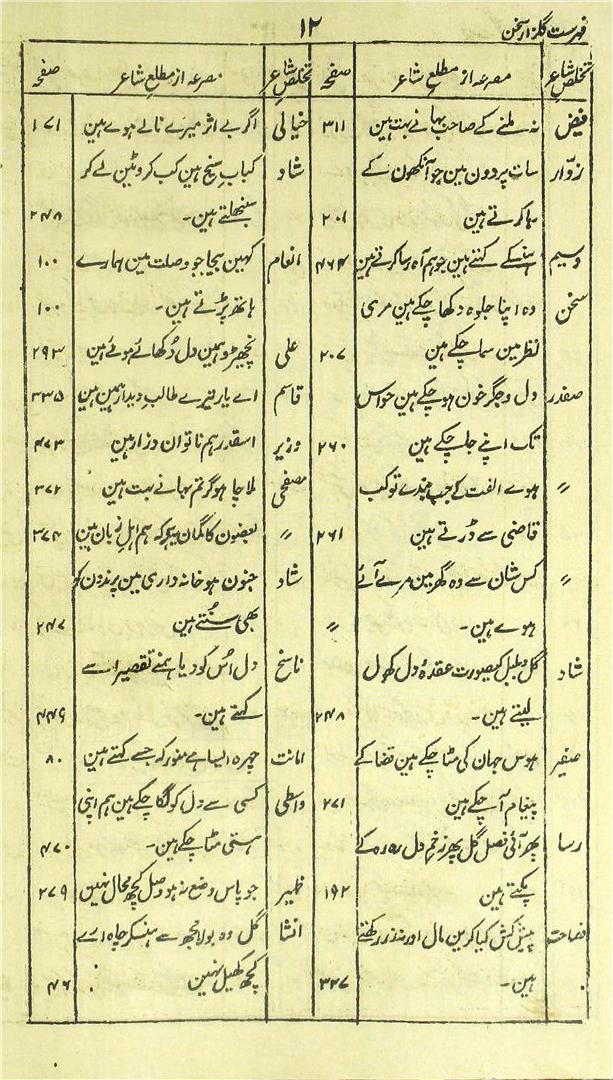 فہرست گلزار سخن
۱۲
تخلص شاعر مصرعہ از مطلع شاعر صفحہ
فیض نہ ملنے کے صاحب بہانے بہت ہین ۳۱۱
زوّار سات پردون مین جو آنکھون کے
رہا کرتے ہین ۲۰۱
وسیم ہنسکے کہتے ہین جو ہم آہ رسا کرتے ہین ۴۶۴
سخن وہ اپنا جلوہ دکھا چکے ہین مری
نظر مین سما چکے ہین ۲۰۷
صفدر دل و جگر خون ہو چکے ہین حواس
تک اپنے جا چکے ہین ۲۶۰
〃 ہوے الفت کے جب بندے تو کب
قاضی سے ڈرتے ہین ۲۶۱
〃 کس شان سے وہ گھر مین مرے آئے
ہوے ہین۔ 〃
شاد گل و بلبل کیصورت عقدۂ دل کھول
لیتے ہین۔ ۲۴۸
صفیر ہوس جہان کی مٹا چکے ہین قضا کے
پیغام آ چکے ہین ۲۷۱
رسا پھر آئی فصل گل پھر زخم دل رہ رہ کے
پکتے ہین ۱۹۲
فصاحت پیش کش کیا کرین مال اور نہ زر رکھتے
ہین۔ ۳۲۷
تخلص شاعر مصرعہ از مطلع شاعر صفحہ
خیالی اگر بے اثر میرے نالے ہوے ہین ۱۷۱
شاد کباب سیخ ہین کب کروٹین لے کر
سنبھلتے ہین۔ ۲۴۸
انعام کہین بیجا جو وصلت مین ہمارے ۱۰۰
ہاتھ پڑتے ہین۔ ۱۰۰
علی نچھڑو ہمین دل دُکھائے ہوئے ہین ۲۹۳
قاسم اے یار تیرے طالب دیدار ہمین ہین ۳۳۵
وزیر اسقدر ہم ناتوان و زار ہین ۴۷۳
مصحفی ہو گر تم بہانے بہت ہین ۳۷۲
〃 بعضون کا گمان ہے کہ ہم اہل زبان ہین ۳۷۴
شاد جنون ہو خانہ داری مین پرندون کو
بھی سنتے ہین ۲۴۷
ناسخ دل اُس کو دیا ہمنے تقصیر اسے
کہتے ہین۔ ۴۴۹
امانت چہرہ ایسا ہے منور کہ جسے کہتے ہین ۸۰
واسطی کسی سے دل کو لگا چکے ہین ہم اپنی
ہستی مٹا چکے ہین۔ ۴۷۰
ظہیر جو پاس وضع نہ ہو وصل کچھ محال نہین ۲۷۹
انشا گل وہ بولا مجھ سے ہنسکر چاہ ارے
کچھ کھیل نہین ۴۶